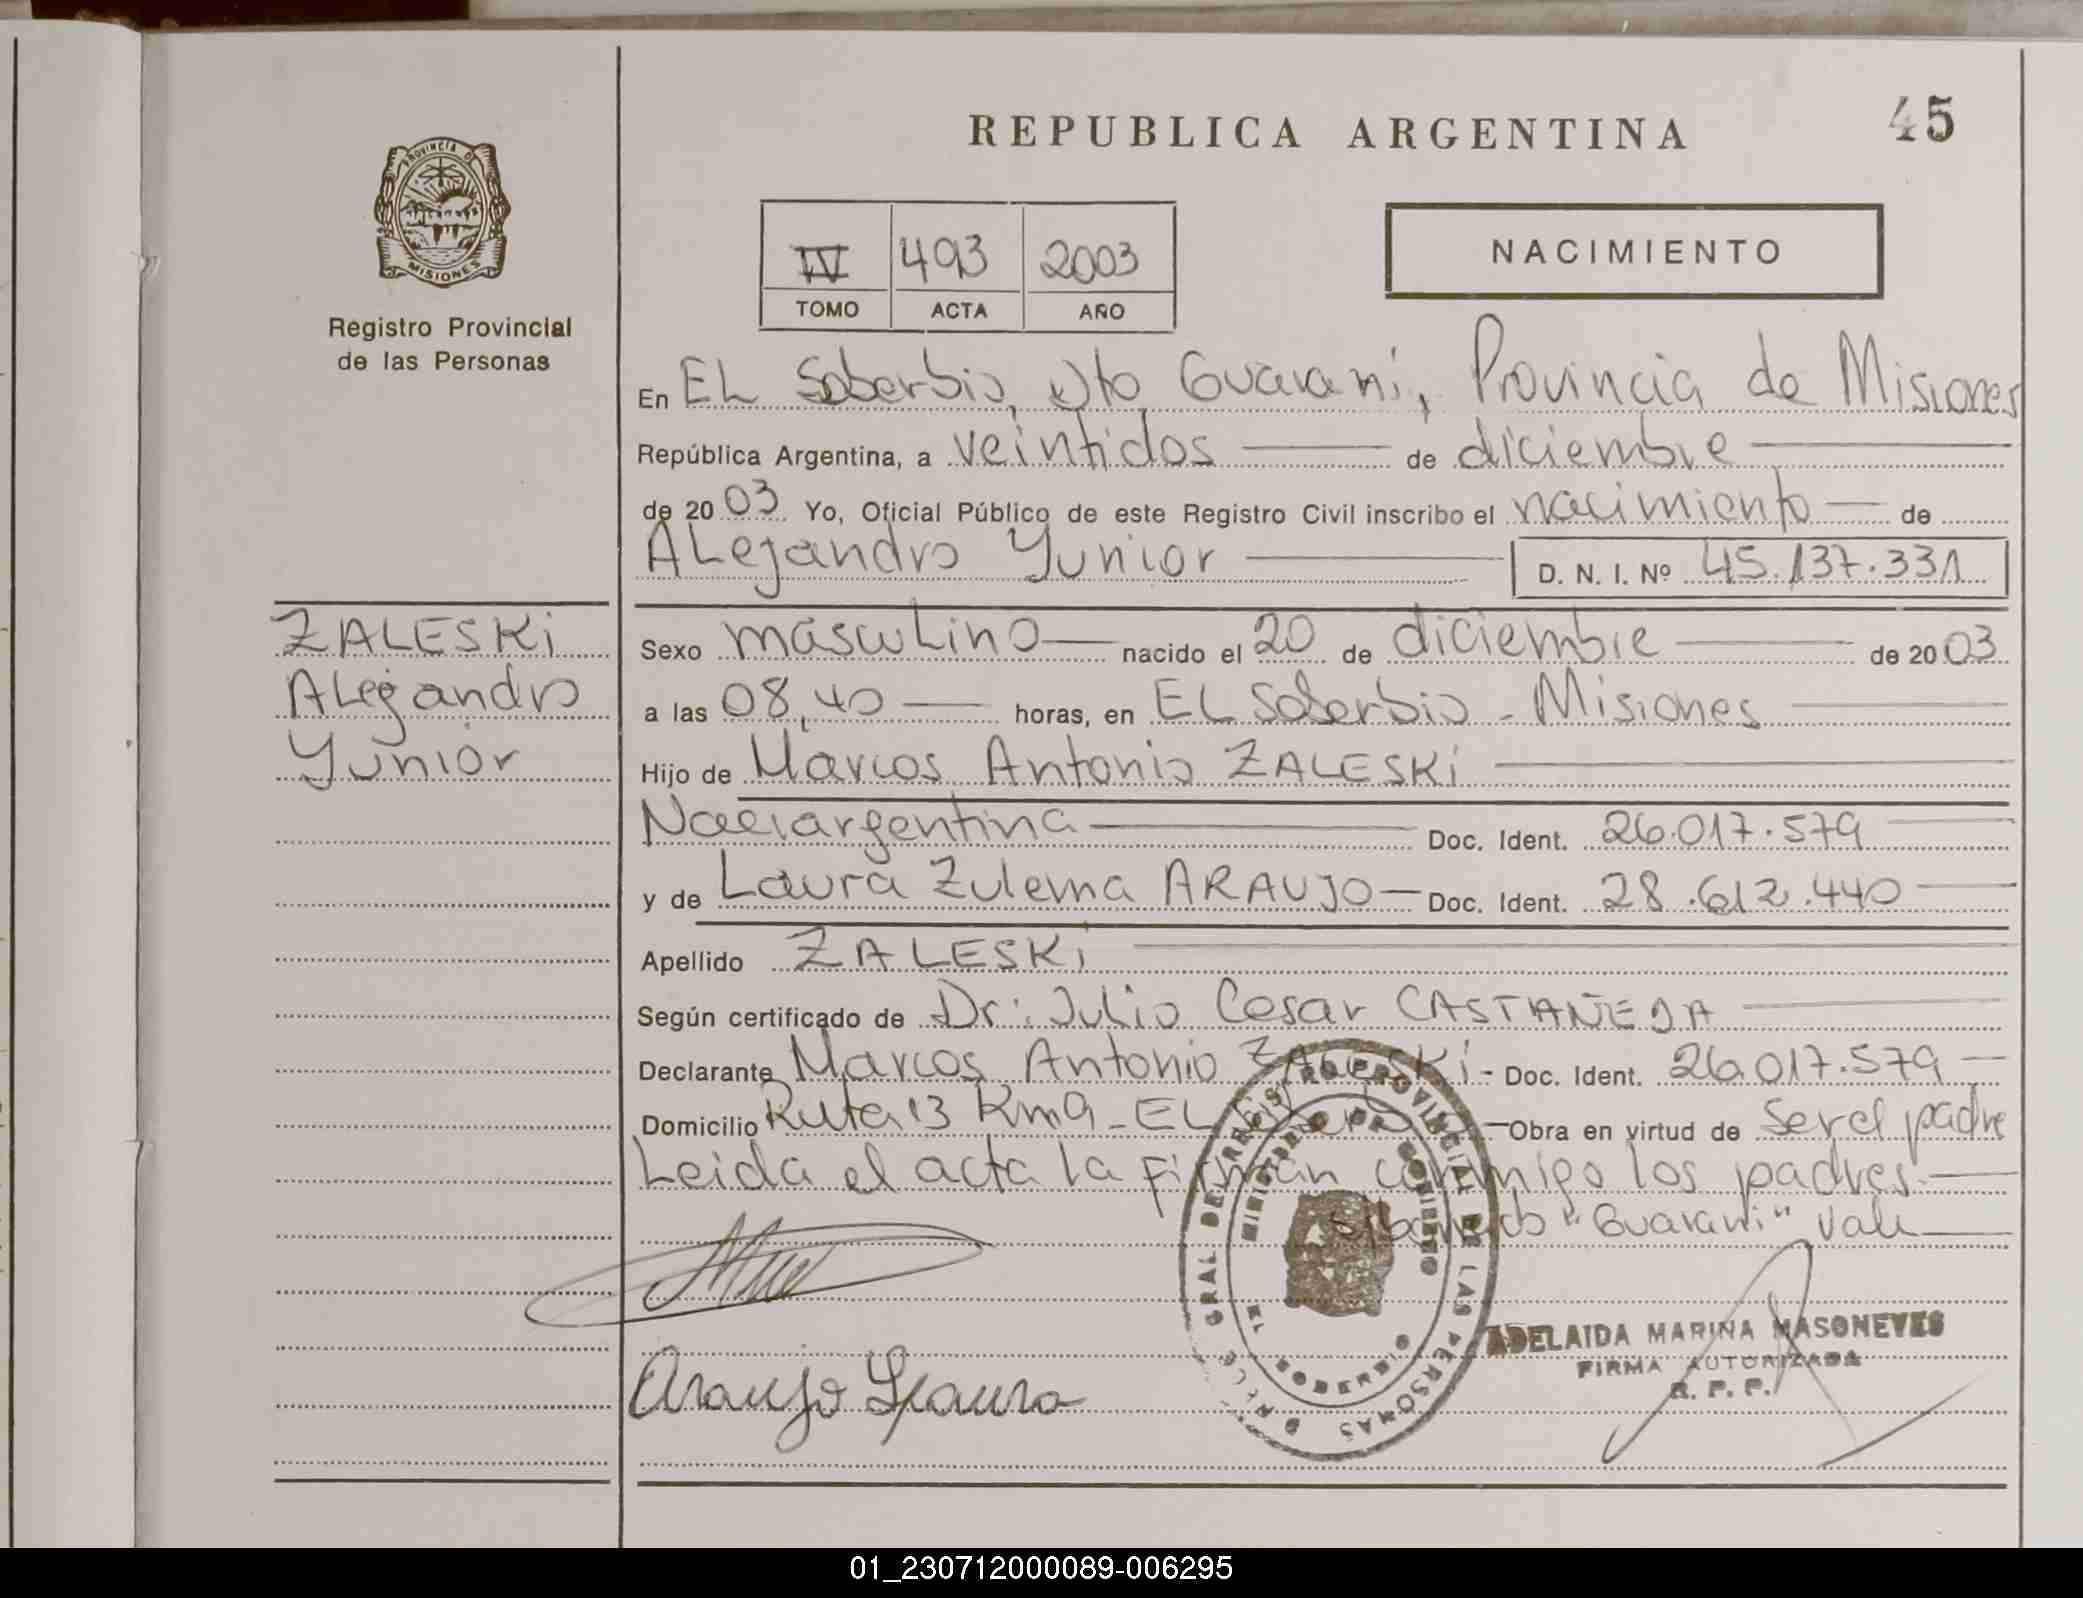 REPUBLICA ARGENTINA
45
PROVINCIA DE
MISIONES
Registro Provincial
de las Personas
IV 493 2003
TOMO ACTA AÑO
NACIMIENTO
En EL Soberbio, Dto Guarani, Provincia de Misiones
República Argentina, a veintidos de diciembre
de 2003 Yo, Oficial Público de este Registro Civil inscribo el nacimiento de
ALejandro Yunior D. N. I. Nº 45.137.331
ZALESKi
ALejandro
Yunior
Sexo mascuLino nacido el 20 de diciembre de 2003
a las 08,40 horas, en EL Soberbio - Misiones
Hijo de Marcos Antonio ZALESKi
argentina Doc. Ident. 26.017.579
y de Laura Zulema ARAUJO Doc. Ident. 28.612.440
Apellido ZALESKi
Según certificado de Dr: Julio Cesar CASTAÑEDA
Declarante Marcos Antonio ZALESKi - Doc. Ident. 26.017.579
Domicilio Ruta 13 Km 9 - EL Obra en virtud de Ser el padre
Leida el acta la firman conmigo los padres
"Guarani" Vale
Araujo Laura
ADELAIDA MARINA MASONEVES
FIRMA AUTORIZADA
R. P. P.
GRAL DEL REGISTRO PROVINCIAL DE LAS PERSONAS
MINISTERIO DE GOBIERNO
01_230712000089-006295